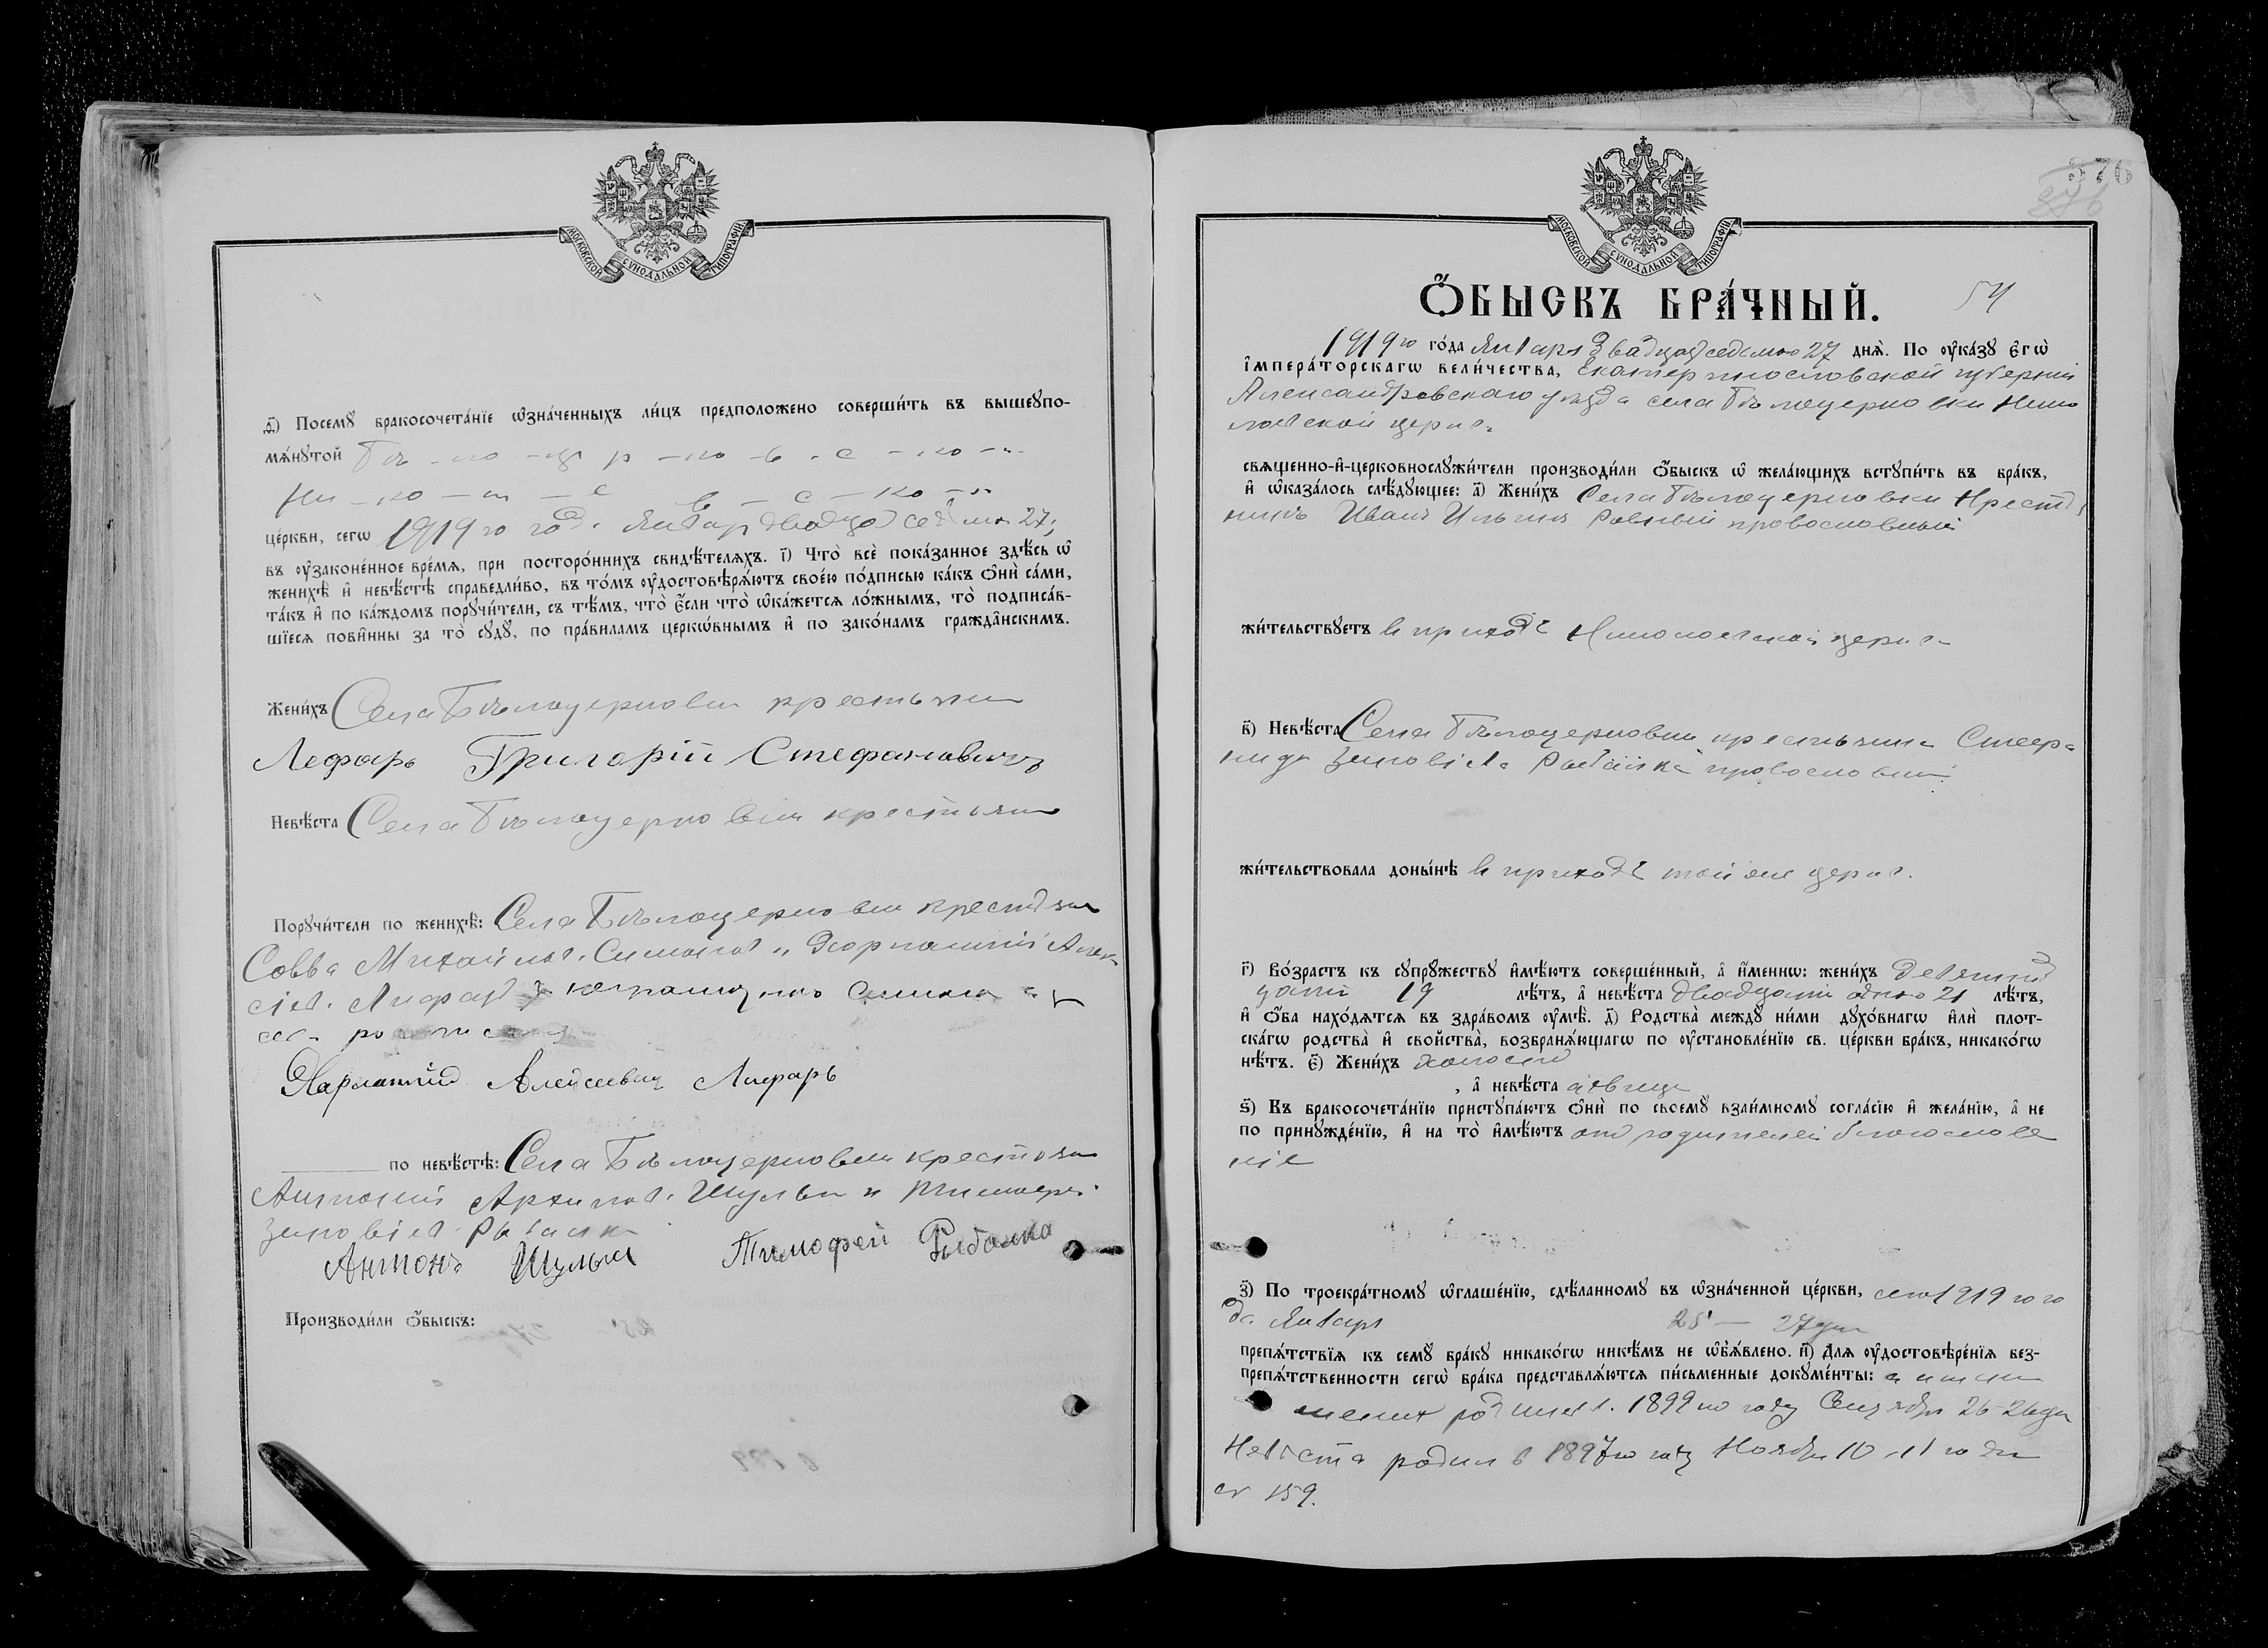 МОСКОВСКОЙ СѴНОДАЛЬНОЙ ТИПОГРАФІИ
д҃і) Посемꙋ бракосочета́нїе ѡ҆зна́ченныхъ ли́цъ предположено соверши́ть въ вышеꙋпо-
мѧ́нꙋтой Бѣ - ло - це р - ко - в - с - ко - й
Ни - ко - л - а е в - с - ко - й
це́ркви, сегѡ 1919 го год. Января двадцат седьмо 27;
въ ᲂу҆законе́нное вре́мѧ, при посторо́ннихъ свидѣ́телѧхъ. і҃) Что̀ всѐ пока́занное здѣ́сь ѡ҆
женихѣ̀ и҆ невѣ́стѣ справедли́во, въ то́мъ ᲂу҆достовѣрѧ́ютъ свое́ю по́дписью ка́къ ѻ҆нѝ са́ми,
та́къ и҆ по ка́ждомъ порꙋчи́тели, съ тѣ́мъ, что̀ є҆́сли что̀ ѡ҆ка́жетсѧ ло́жнымъ, то̀ подписа́в-
шїесѧ пови́нны за то̀ сꙋдꙋ̀, по пра́виламъ церкѡ́внымъ и҆ по зако́намъ гражда̂нскимъ.
Жени́хъ Села Бѣлоцерковки крестьянин
Лефарь Григорій Стефановичъ
Невѣ́ста Села Бѣлоцерковки крестьян
Порꙋчи́тели по женихѣ̀: Села Бѣлоцерковки крестьян
Совва Михайлов. Симонов и Харлампий Алек-
сіев. Лифарь
Харлампий Алексеевич Лифарь
по невѣ́стѣ: Села Бѣлоцерковки крестьян
Антоній Архипов. Шульги и Тимофей
Зиновіев. Рыбалк
Антонъ Шульга Тимофей Рыбалка
Производи́ли ѻ҆́быскъ:
376
376
МОСКОВСКОЙ СѴНОДАЛЬНОЙ ТИПОГРАФІИ
Ѻ҆́БЫСКЪ БРА́ЧНЫЙ. 54
1919 го го́да Января Двадцат седьмого 27 днѧ̀. По ᲂу҆ка́зꙋ є҆гѡ̀
і҆мпера́торскагѡ вели́чества, Екатеринославской губерніи
Александровскаго уѣзда села Бѣлоцерковки Нико
лаевской церкв.
свѧщенно-и҆-церковнослꙋжи́тели производи́ли ѻ҆́быскъ ѡ҆ жела́ющихъ встꙋпи́ть въ бра́къ,
и҆ ѡ҆каза́лось слѣ́дꙋющее: а҃) Жени́хъ Села Бѣлоцерковки Крестья
нинъ Иванъ Ильинъ Ровный провославный
жи́тельствꙋетъ в приходѣ Николаевской церкв.
в҃) Невѣ́ста Села Бѣлоцерковки крестьянка Стефа
нида Зиновіева Рыбалка провославний
жи́тельствовала доны́нѣ в приходѣ той же церкв.
г҃) Во́зрастъ къ сꙋпрꙋ́жествꙋ и҆мѣ́ютъ соверше́нный, а҆ и҆́меннѡ: жени́хъ девятнад
цати 19 лѣ́тъ, а҆ невѣ́ста двадцати одного 21 лѣ́тъ,
и҆ ѻ҆́ба нахо́дѧтсѧ въ здра́вомъ ᲂу҆мѣ̀. д҃) Родства̀ междꙋ ни́ми дꙋхо́внагѡ и҆лѝ плот-
ска́гѡ родства̀ и҆ сво́йства̀, возбранѧ́ющагѡ по ᲂу҆становле́нїю св. це́ркви бра́къ, никако́гѡ
нѣ́тъ. є҃) Жени́хъ холост
, а҆ невѣ́ста девица
ѕ҃) Къ бракосочета́нїю пристꙋпа́ютъ ѻ҆нѝ по своемꙋ̀ взаи́мномꙋ согла́сїю и҆ жела́нїю, а҆ не
по принꙋжде́нїю, и҆ на то̀ и҆мѣ́ютъ от родителей благослове
ніе
з҃) По троекра́тномꙋ ѡ҆глаше́нїю, сдѣ́ланномꙋ въ ѡ҆зна́ченной це́ркви, сего 1919 го го
да Января 25 — 27 дня
препѧ́тствїѧ къ семꙋ̀ бра́кꙋ никако́гѡ никѣ́мъ не ѡ҆б̾ѧ́влено. и҃) Длѧ ᲂу҆достовѣре́нїѧ без-
препѧ́тственности сегѡ̀ бра́ка представлѧ́ютсѧ пи́сьменные докꙋме́нты:
жених родился. 1899 го году Сентября 26-26 дня
Невѣста родил в 1897 го году Ноября 10, 11 го дня
ст 159.